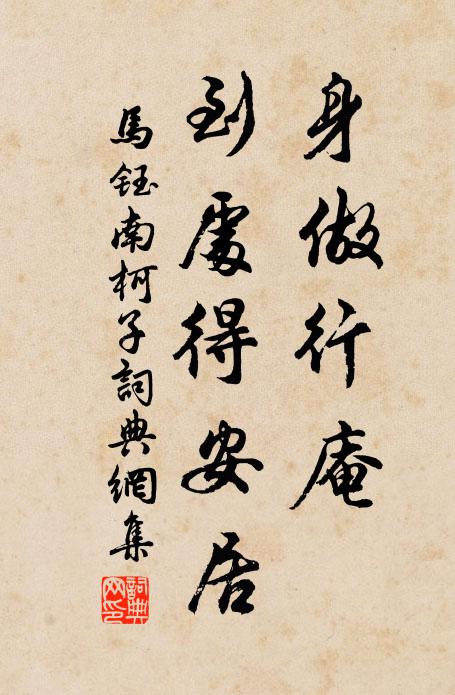 身做行庵
到處得安居
馬鈺南柯子詞典網集
詞典網印